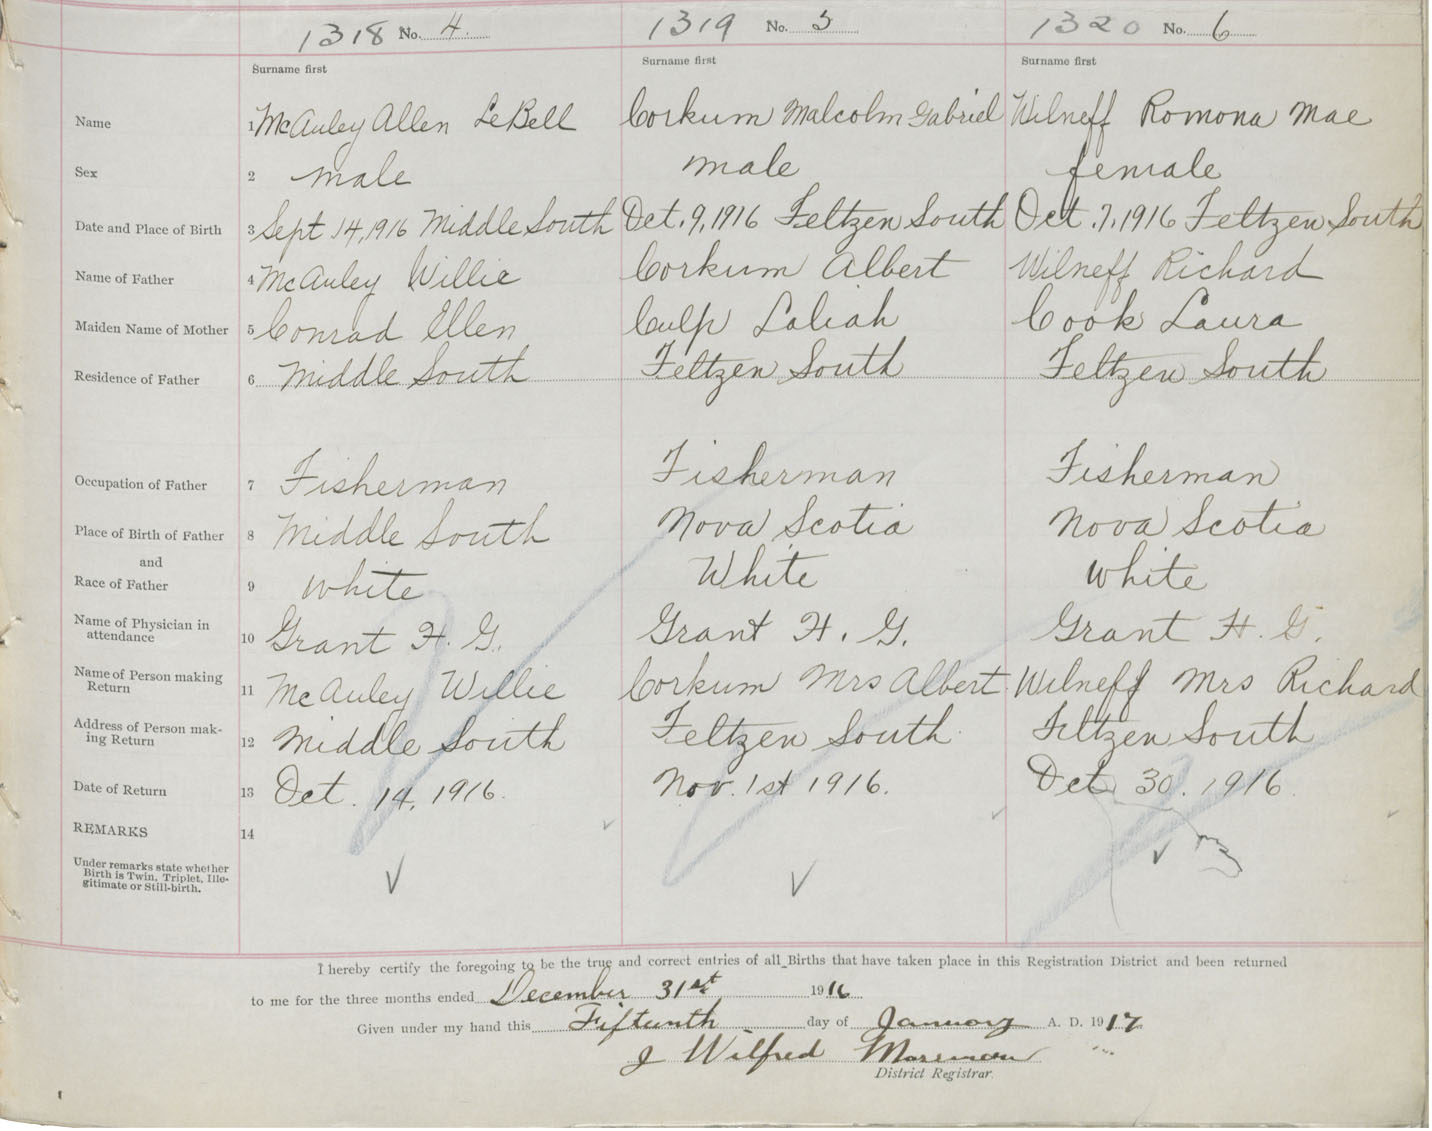 1318 No. 4. 1319 No. 5 1320 No. 6
Surname first Surname first Surname first
Name 1 McAuley Allen LeBell Corkum Malcolm Gabriel Wilneff Romona Mae
Sex 2 male male female
Date and Place of Birth 3 Sept 14, 1916 Middle South Oct. 9, 1916 Feltzen South Oct. 7, 1916 Feltzen South
Name of Father 4 McAuley Willie Corkum Albert Wilneff Richard
Maiden Name of Mother 5 Conrad Ellen Culp Laliah Cook Laura
Residence of Father 6 Middle South Feltzen South Feltzen South
Occupation of Father 7 Fisherman Fisherman Fisherman
Place of Birth of Father 8 Middle South Nova Scotia Nova Scotia
and
Race of Father 9 white White white
Name of Physician in
attendance 10 Grant H. G. Grant H. G. Grant H. G.
Name of Person making
Return 11 McAuley Willie Corkum Mrs Albert Wilneff Mrs Richard
Address of Person mak-
ing Return 12 Middle South Feltzen South Feltzen South
Date of Return 13 Oct. 14, 1916. Nov. 1st 1916. Oct 30. 1916.
REMARKS 14
Under remarks state whether
Birth is Twin, Triplet, Ille-
gitimate or Still-birth.
I hereby certify the foregoing to be the true and correct entries of all Births that have taken place in this Registration District and been returned
to me for the three months ended December 31st 1916
Given under my hand this Fifteenth day of January A. D. 1917
J Wilfred
District Registrar.